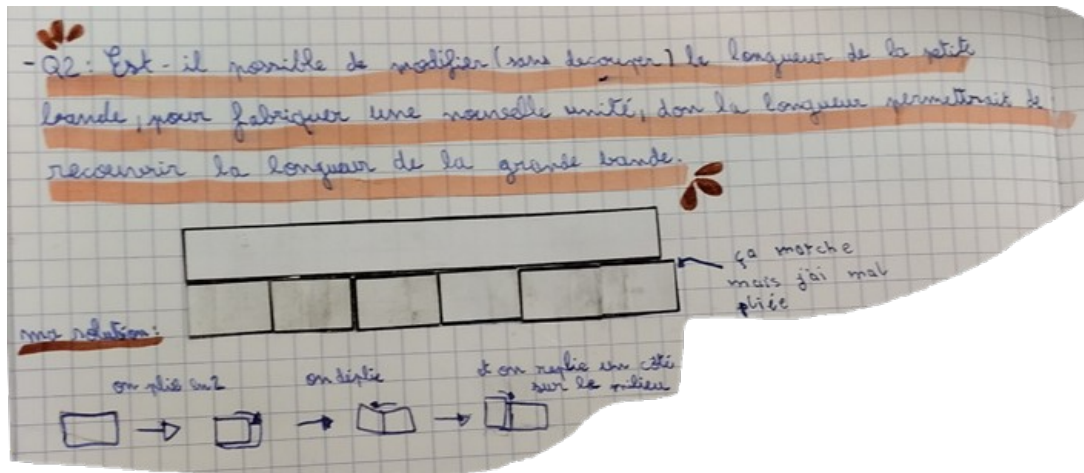 - Q2: Est-il possible de modifier (sans decouper) le longueur de la petite
bande, pour fabriquer une nouvelle unité, don la longueur permettrait de
recouvrir la longueur de la grande bande.
ça marche
mais j'ai mal
pliée
ma solution:
on plie en 2
on déplie
et on replie un côté
sur le milieu